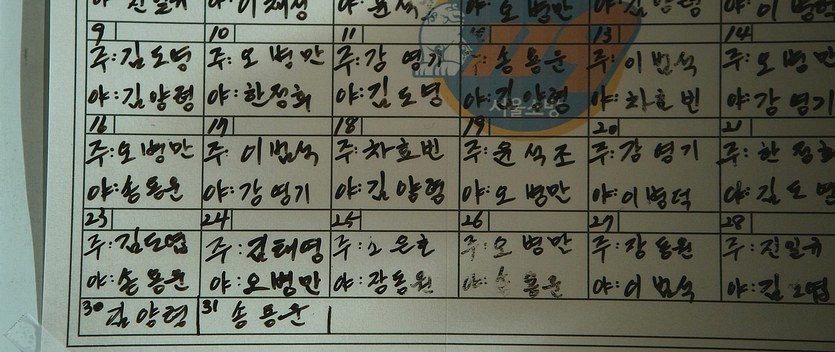 야: 오 병만
9 10 11 13 14
주: 김도영 주: 오 병만 주: 강 영기 주: 송용운 주: 이범석 주: 오 병만
야: 김양령 야: 한정희 야: 김도영 야: 김양령 야: 차효빈 야: 강영기
서울소방
16 17 18 19 20 21
주: 오병만 주: 이범석 주: 차효빈 주: 윤석조 주: 강영기 주: 한정희
야: 송용운 야: 강영기 야: 김양령 야: 오병만 야: 이병덕 야: 김도영
23 24 25 26 27 28
주: 김도엽 주: 김태영 주: 주: 오병만 주: 장동원 주: 진일규
야: 송용운 야: 오병만 야: 장동원 야: 송용운 야: 이범석 야: 김도엽
30 김양령 31 송용운